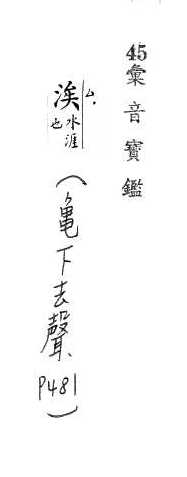 45彙音寶鑑
涘水涯也(亀下去聲P481)